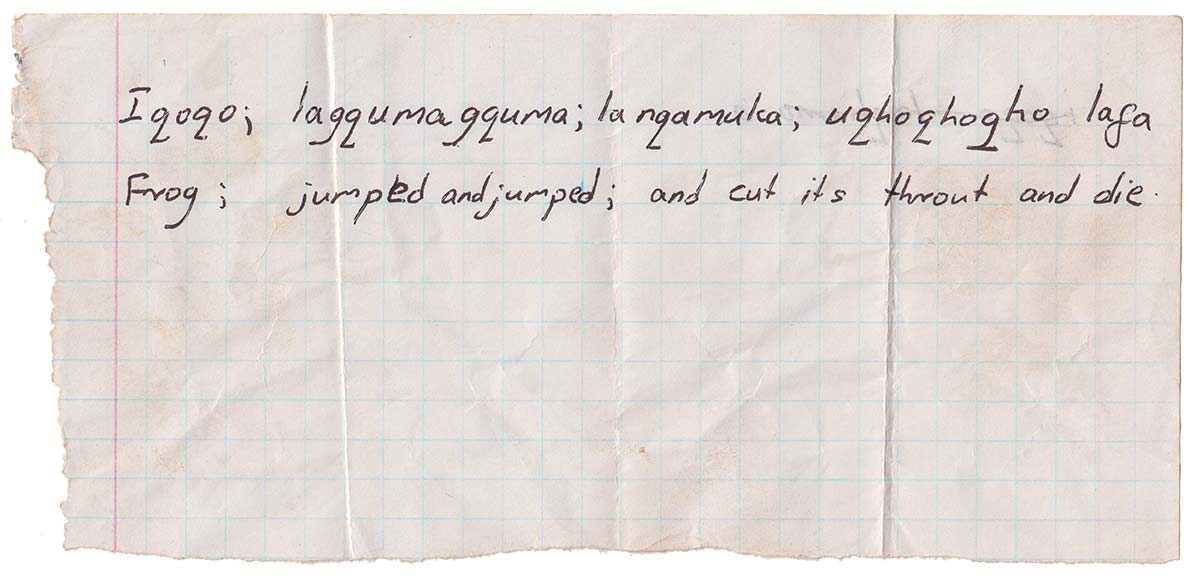 Iqoqo; lagqumagquma; la nqamuka; uqhoqhoqho lafa
Frog; jumped and jumped; and cut its throut and die.